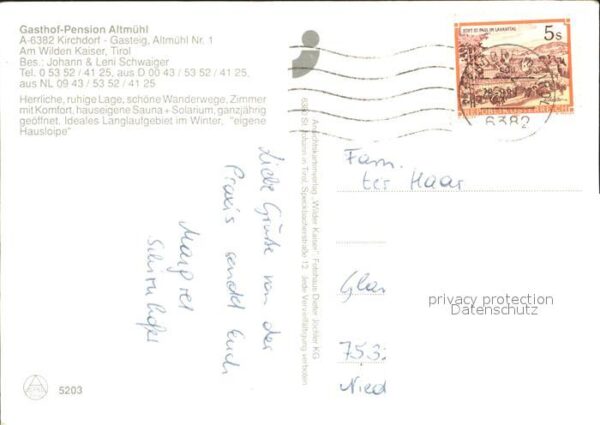 Gasthof-Pension Altmühl
A-6382 Kirchdorf - Gasteig, Altmühl Nr. 1
Am Wilden Kaiser, Tirol
Bes.: Johann & Leni Schwaiger
Tel. 0 53 52 / 41 25, aus D 00 43 / 53 52 / 41 25,
aus NL 09 43 / 53 52 / 41 25
Herrliche, ruhige Lage, schöne Wanderwege, Zimmer
mit Komfort, hauseigene Sauna + Solarium, ganzjährig
geöffnet. Ideales Langlaufgebiet im Winter, "eigene
Hausloipe"
Liebe Grüße von der
Praxis sendet Euch
Margret
5203
Ansichtskartenverlag "Wilder Kaiser" Fotohaus Dieter Jöchler KG
St. Johann in Tirol, Speckbacherstraße 12. Jede Vervielfältigung verboten
STIFT ST. PAUL IM LAVANTTAL
5s
REPUBLIK ÖSTERREICH
6382
Fam.
ter Haar
Glan
753
Nied
privacy protection
Datenschutz